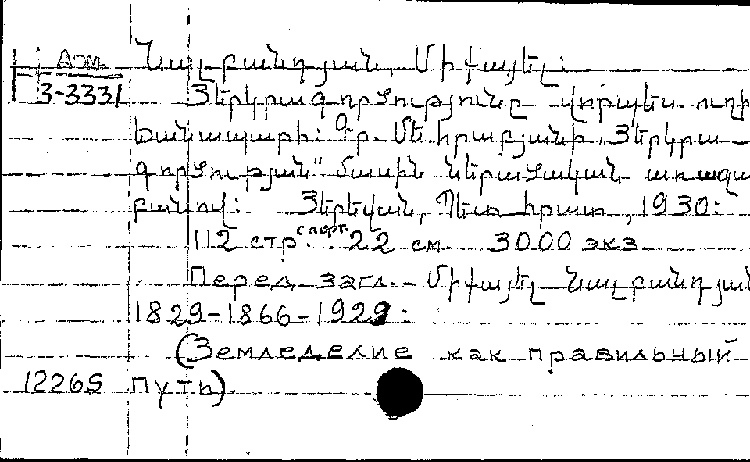 Арм.
3-3331
Նալբանդյան, Միքայել.
Յերկրագործությունը վորպես ուղի
ճանապարհ: Գր. Մեհրաբյանի „Յերկրա-
գործության" մասին ներածական առաջա
բանով: Յերեվան, Պետհրատ, 1930:
112 стр. с порт. 22 см 3000 экз
Перед загл. Միքայել Նալբանդյան
1829-1866-1929.
(Земледелие как правильный
12265 путь)